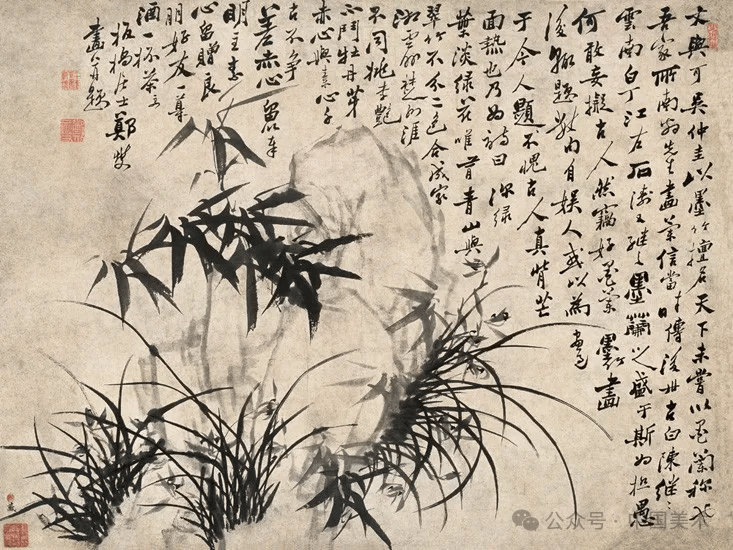 文與可吳仲圭以墨竹擅名天下未嘗以墨蘭称也
吾家所南翁先生畫蘭信當時傳後世古白陳継〻
雲南白丁江左石濤又継之墨蘭之盛于斯為極愚
何敢妄擬古人然竊好墨蘭墨竹畫
後輒題數句自娛人或以為
于今人題不愧古人真背芒
面熱也乃為詩曰 深綠
葉淡綠花唯有青山與
翠竹不分二色合成家
湘雲楚水涯
不同桃李艷
不鬥牡丹芽
赤心與素心
古不爭
差赤心留以奉
明主素
心留贈良
朋好友一尊
酒一杯茶
板橋居士鄭燮
畫并題
公众号·中国美术